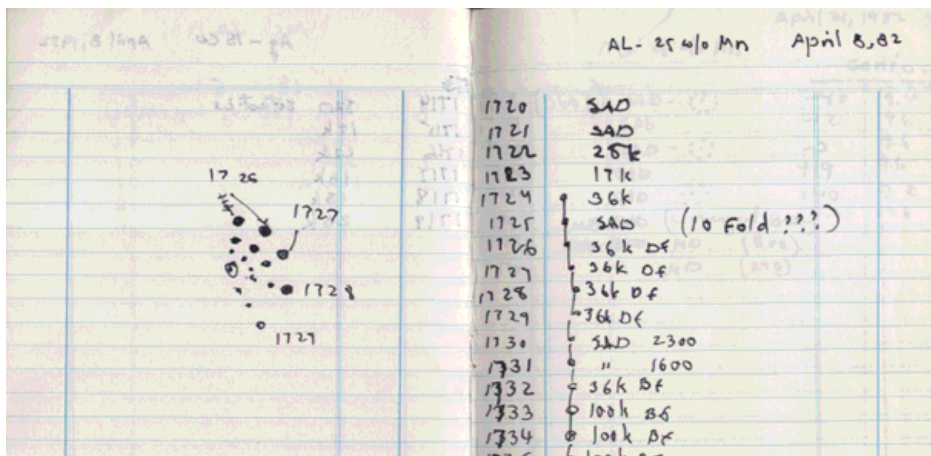 AL- 25 w/o Mn April 8, 82
1726
1727
1728
1729
1720 SAD
1721 SAD
1722 25k
1723 17k
1724 36k
1725 SAD (10 Fold ???)
1726 36k Df
1727 36k Df
1728 36k Df
1729 36k Df
1730 SAD 2300
1731 " 1600
1732 36k Bf
1733 100k Bf
1734 100k Bf
100k Bf